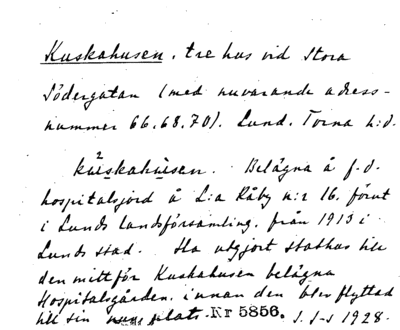 Kuskahusen, tre hus vid Stora
Södergatan (med nuvarande adress-
nummer 66, 68, 70). Lund. Torna h:d.
kuskahusen. Belägna å f.d.
hospitalsjord å L:a Råby n:r 16, förut
i Lunds landsförsamling, från 1913 i
Lunds stad. Ha utgjort stathus till
den mittför Kuskahusen belägna
Hospitalsgården, innan den blev flyttad
till sin nuv. plats. Nr 5856. S. I-s 1928.